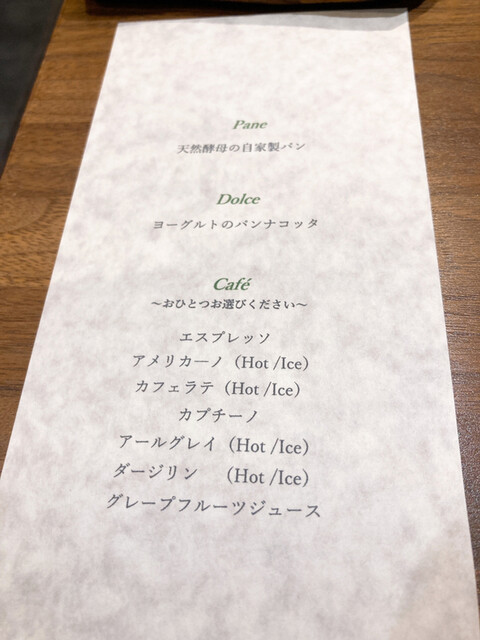 Pane
天然酵母の自家製パン
Dolce
ヨーグルトのパンナコッタ
Café
～おひとつお選びください～
エスプレッソ
アメリカ―ノ（Hot /Ice）
カフェラテ（Hot /Ice）
カプチーノ
アールグレイ（Hot /Ice）
ダージリン　（Hot /Ice）
グレープフルーツジュース